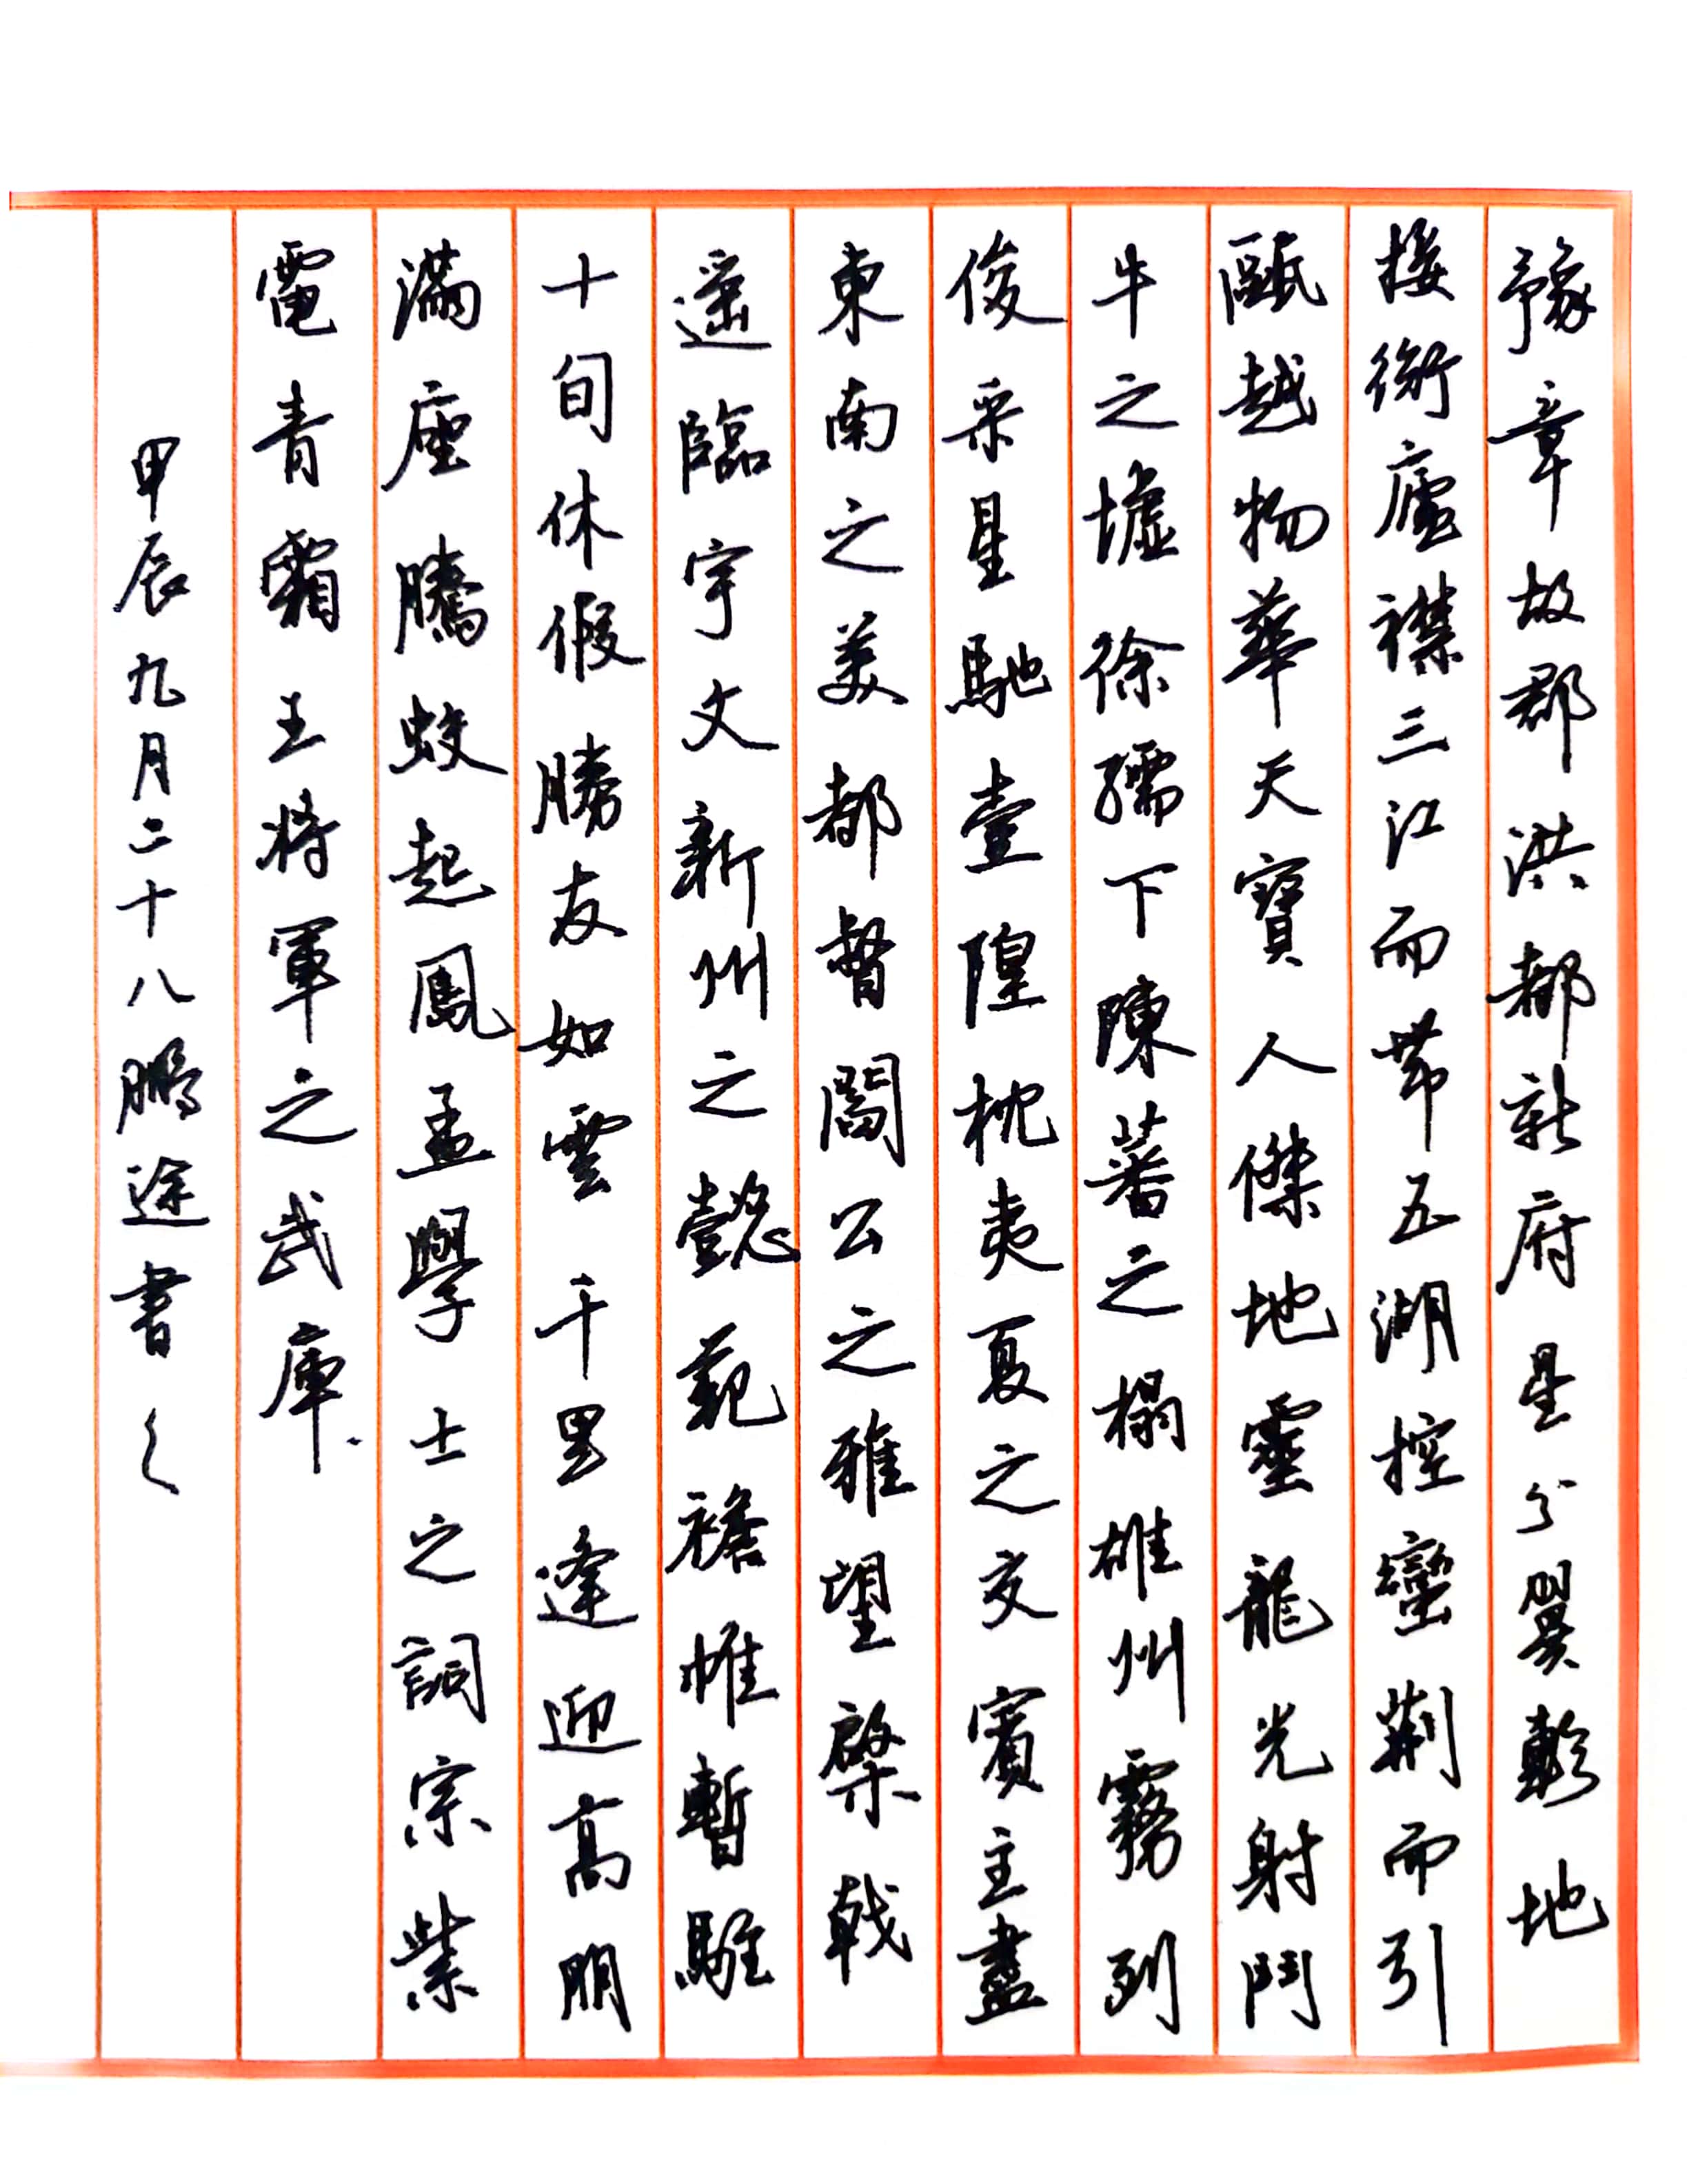 豫章故郡洪都新府星分翼軫地
接衡廬襟三江而帶五湖控蠻荊而引
甌越物華天寶人傑地靈龍光射鬥
牛之墟徐孺下陳蕃之榻雄州霧列
俊采星馳臺隍枕夷夏之交賓主盡
東南之美都督閻公之雅望棨戟
遙臨宇文新州之懿範襜帷暫駐
十旬休假勝友如雲千里逢迎高朋
滿座騰蛟起鳳孟學士之詞宗紫
電青霜王將軍之武庫
甲辰九月二十八鵬途書